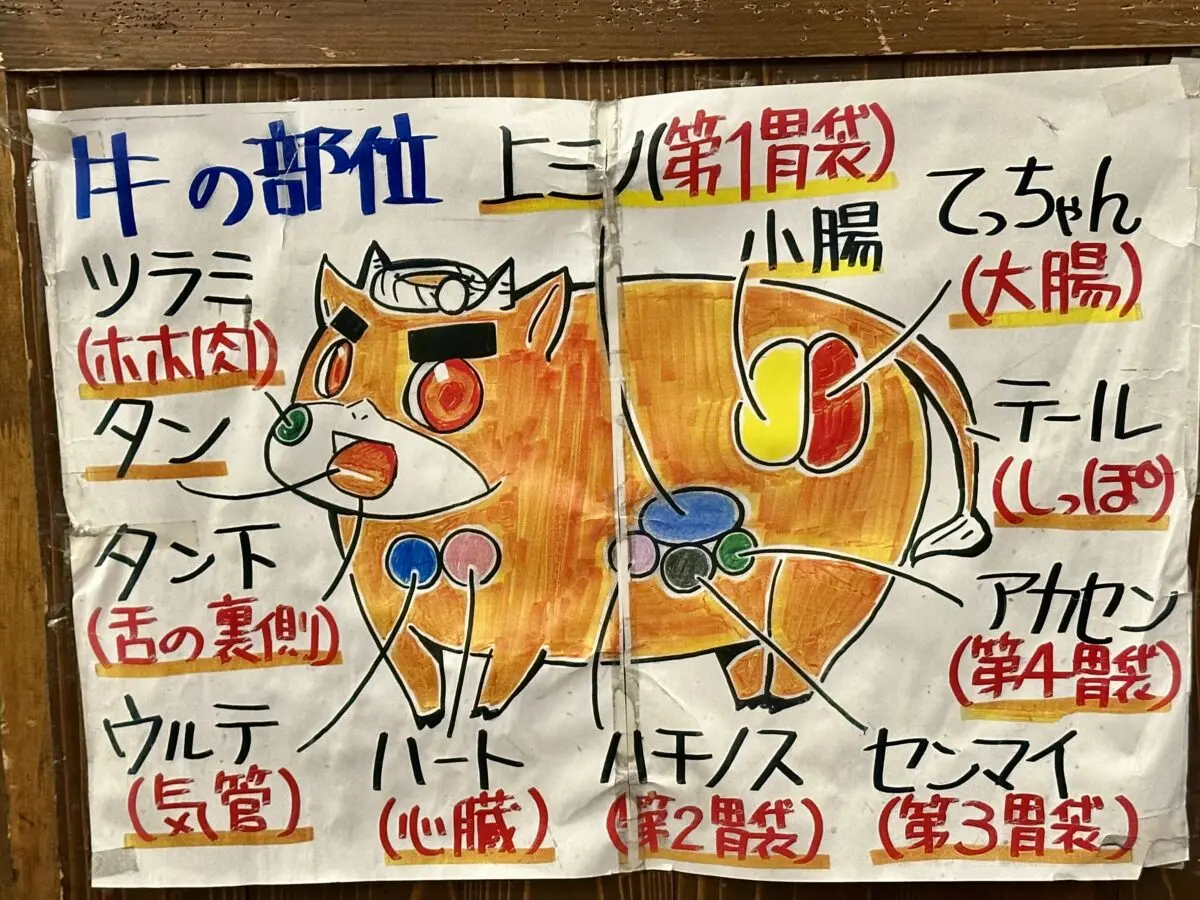 牛の部位
上ミノ(第1胃袋)
小腸
てっちゃん
(大腸)
ツラミ
(ホホ肉)
タン
テール
(しっぽ)
タン下
(舌の裏側)
アカセン
(第4胃袋)
ウルテ
(気管)
ハート
(心臓)
ハチノス
(第2胃袋)
センマイ
(第3胃袋)